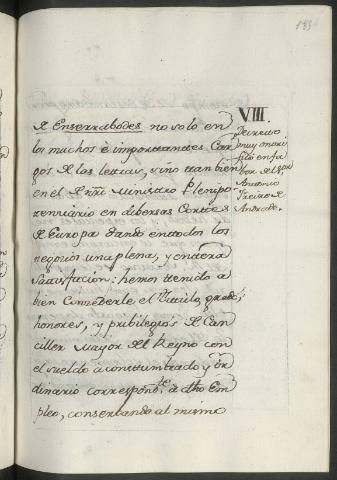 VIII.
Decreto
muy onori
fico en fa
bor del Sor
Antonio
Freire de
Andrade.
de Enserrabodes no solo en
los muchos è importtantes Car
gos de las letras, sino tanbien
en el de nro Ministro Plenipo
tenciario en dibersas Cortes
de Europa dando en todos los
negocios una plena, y entera
satisfacion: hemos tenido a
bien Concederle el Titulo, grado,
honores, y pribilegios de Can
ciller Mayor del Reyno con
el sueldo aconstumbrado y or
dinario correspondte a dho Em
pleo, conserbando al mismo